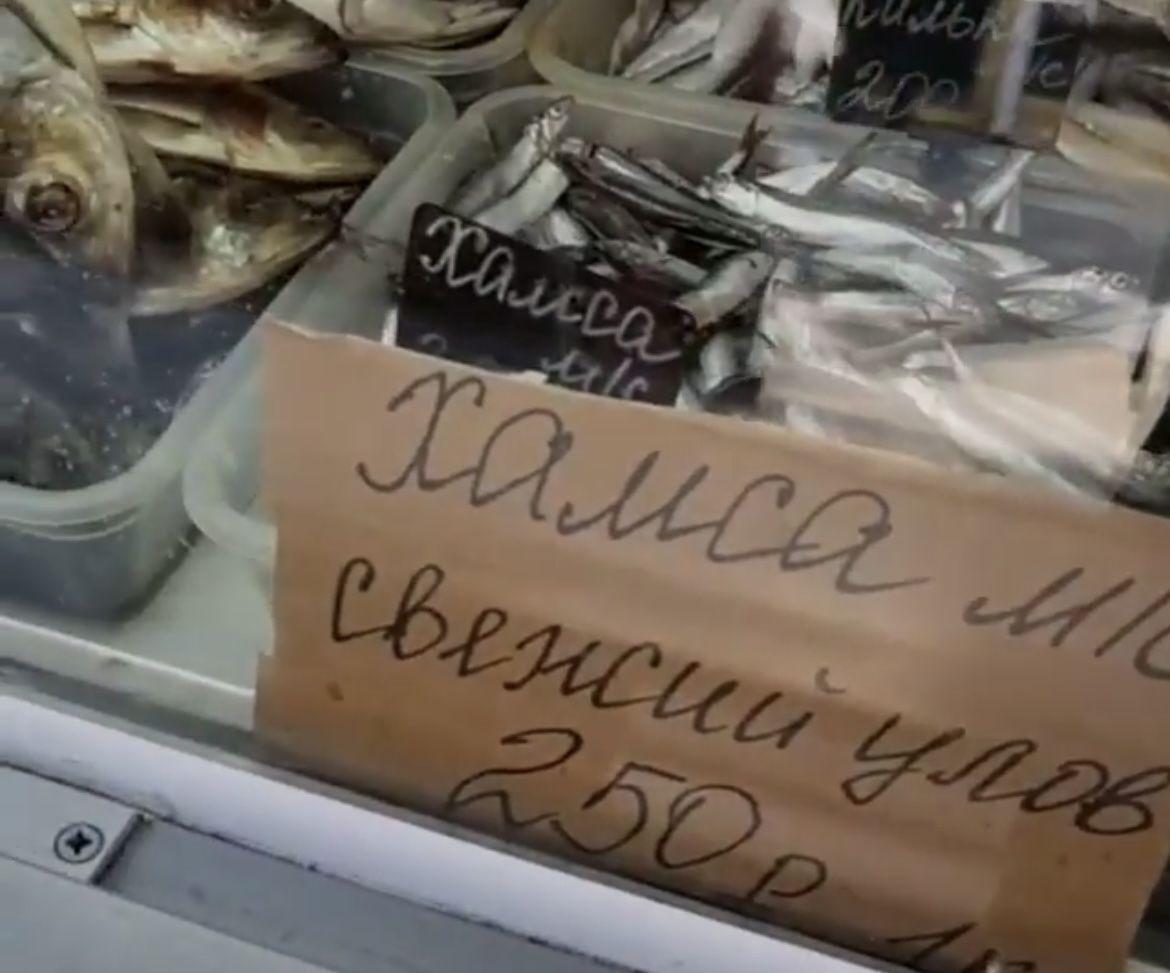 200
Хамса
м/с
Хамса м/с
свежий улов
250 р